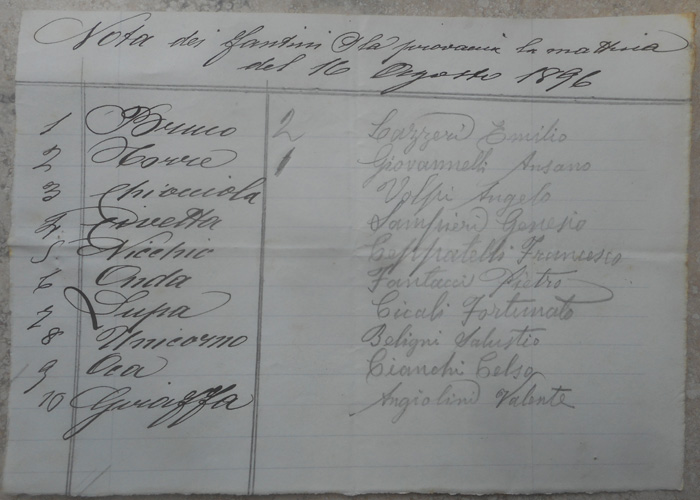 Nota dei fantini Alla provaccia la mattina
del 16 Agosto 1896
1 Bruco 2 Lazzeri Emilio
2 Torre 1 Giovannelli Ansano
3 Chiocciola Volpi Angelo
4. Civetta Sampieri Genesio
5. Nicchio Ceppatelli Francesco
6 Onda Fantacci Pietro
7 Lupa Cicali Fortunato
8 Unicorno Beligni Salustio
9 Oca Cianchi Celso
10 Guiaffa Angiolini Valente